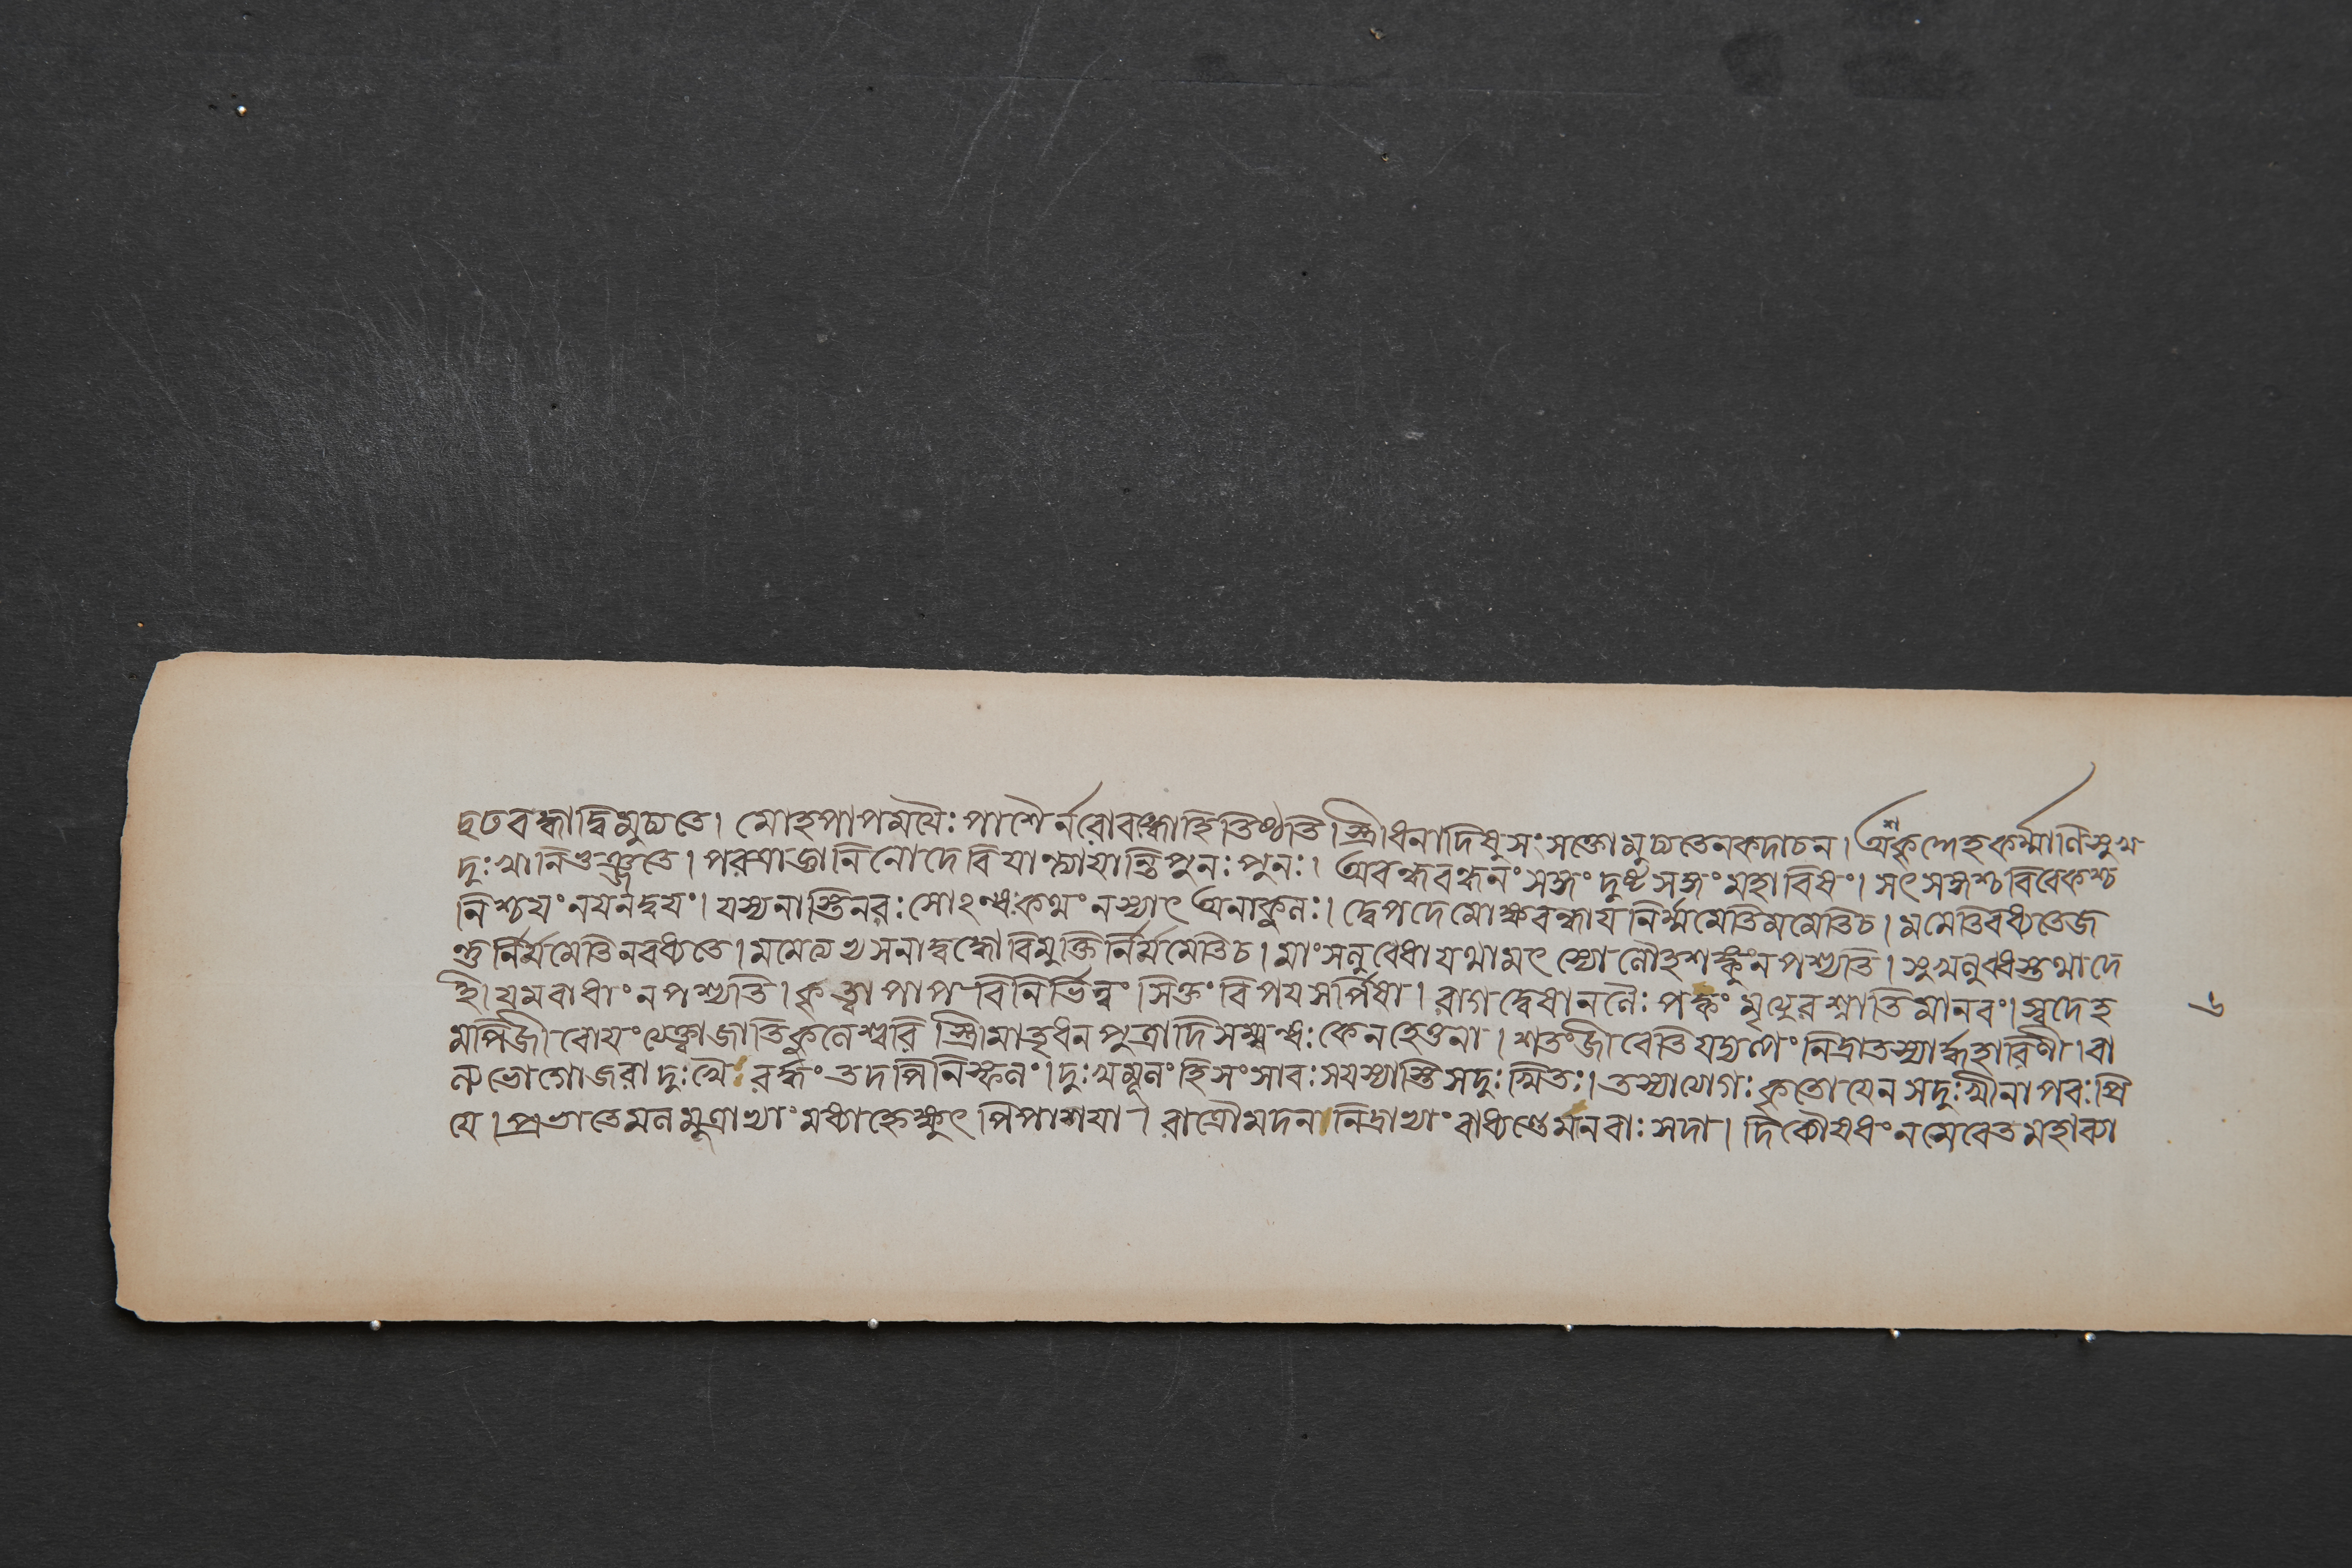 দৃঢবন্ধাদ্বিমুচ্যতে। মোহপাপময়ৈঃ পাশৈর্নরোবদ্ধোহি তিষ্ঠতি। স্ত্রীধনাদিষুসংসক্তোমুচ্যতেনকদাচন। অশ্নকৃদ্দেহকর্ম্মাণিসুখ
দুঃখানিভুঞ্জতে। পরত্রাজ্ঞানিনোদেবিযান্ত্যাযান্তিপুনঃ পুনঃ। অবন্ধবন্ধনংসঙ্গং দুষ্টসঙ্গং মহাবিষং। সৎসঙ্গশ্চবিবেকশ্চ
নিশ্চয়ংনয়নদ্বয়ং। যস্যনাস্তিনরঃসোঽন্ধঃকথংনস্যাৎ অনাকুলঃ। দ্বেপদেমোক্ষবন্ধায়নির্ম্মমেতিমমেতিচ। মমেতিবধ্যতেজ
ন্তুর্নির্ম্মমেতিনবধ্যতে। মমেত্যখসনাদ্বন্ধোবিমুক্তির্নির্ম্মমেতিচ। মাংসলুবেধাযথামৎস্যোলৌহশঙ্কুংনপশ্যতি। সুখলুব্ধস্তথাদে
হী যমবাধাংনপশ্যতি। কৃত্বাপাপবিনির্ভিন্নং সিক্তং বিষয়সর্পিষা। রাগদ্বেষানলৈঃ পক্কং মৃত্যুরশ্নাতিমানবং। স্বদেহ
মপিজীবোয়ংত্যেক্ত্বাজাতিকুলেশ্বরি স্ত্রীমাতৃধনপুত্রাদিসম্মন্ধঃকেনহেতুনা। শতংজীবেতিযদ্যল্পং নিদ্রাতস্যার্দ্ধহারিণী। বা
ল্যভোগোজরাদুঃখৈ রর্দ্ধং তদপিনিস্ফলং। দুঃখমূলংহিসংসারঃসযস্যাস্তিসদুঃখিতঃ। তস্যাযোগঃকৃতোযেনসদুঃখীনাপরঃপ্রি
যে। প্রভাতেমলমূত্রাভ্যাং মধ্যাহ্নেক্ষুৎ পিপাশয়া। রাত্রৌমদননিদ্রাভ্যাং বাধ্যন্তেমনবাঃ সদা।
৬